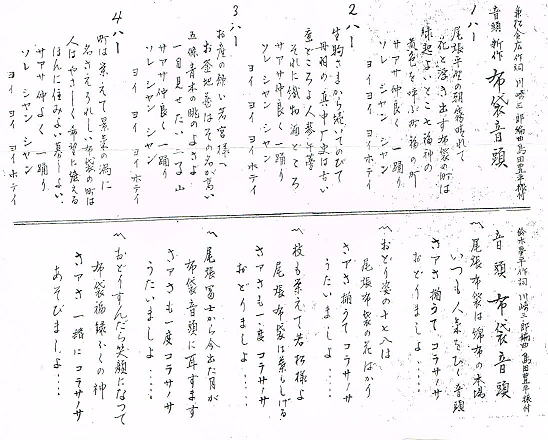 兼松金広作詞 川崎三郎編曲 島田豊年振付
音頭新作 布袋音頭
1ハー
尾張平野の朝霧晴れて
花と浮き出す布袋の町は
縁起よいとこ七福神の
黄色を呼ぶ町福の町
サアサ仲良く一踊り
ソレ シャン シャン
ヨイ ヨイ ヨイ ヨイ ホテイ
2ハー
生駒さまから続いてをりて
母袋の真中で史は古い
京どころよ人参牛蒡
それに織物酒どころ
サアサ仲良く一踊り
ソレ シャン シャン
ヨイ ヨイ ヨイ ホテイ
3ハー
お産の軽い若宮様へ
お釜地蔵はその名が高い
五條青木の眺のよさよ
一目見せたい二子山
サアサ仲良く一踊り
ソレ シャン シャン
ヨイ ヨイ ヨイ ホテイ
4ハー
町は栄えて景気の渦に
名さえうれしい布袋の町は
人はやさしく希望に燃える
ほんに住みよい暮しよい
サアサ仲よく一踊り
ソレ シャン シャン
ヨイ ヨイ ヨイ ヨイ ホテイ
鈴木豊平作詞 川崎三郎編曲 島田豊年振付
音頭 布袋音頭
〽尾張布袋は綿布の本場
いつも人気をひく音頭
さァさ揃うて コラサノサ
おどりましょ‥‥
〽おどり姿の十七八は
尾張布袋の花ばかり
さァさ揃うて コラサノサ
うたいましょ‥‥
〽枝も栄えて若松様よ
尾張布袋は葉もしげる
さァさも一度 コラサノサ
おどりましょ‥‥
〽尾張冨士から今出た月が
布袋音頭に耳すます
さァさも一度 コラサノサ
うたいましょ‥‥
〽おどりすんだら笑顔になって
布袋福禄ふくの神
さァさ 一緒に コラサノサ
あそびましょ‥‥